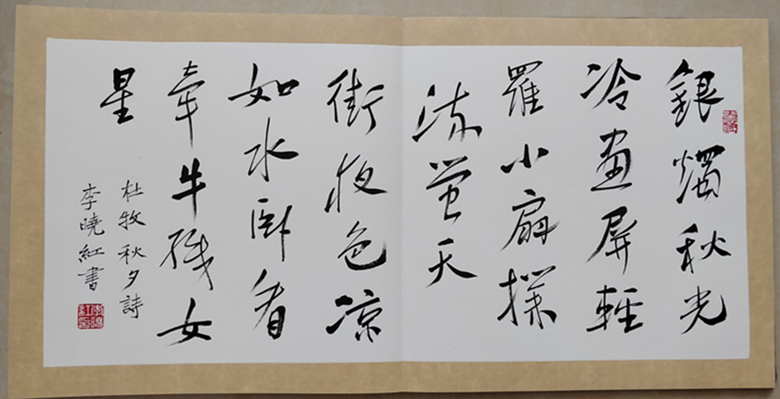 銀燭秋光
冷畫屏輕
羅小扇撲
流螢天
街夜色凉
如水卧看
牽牛織女
星
杜牧秋夕詩
李曉紅書